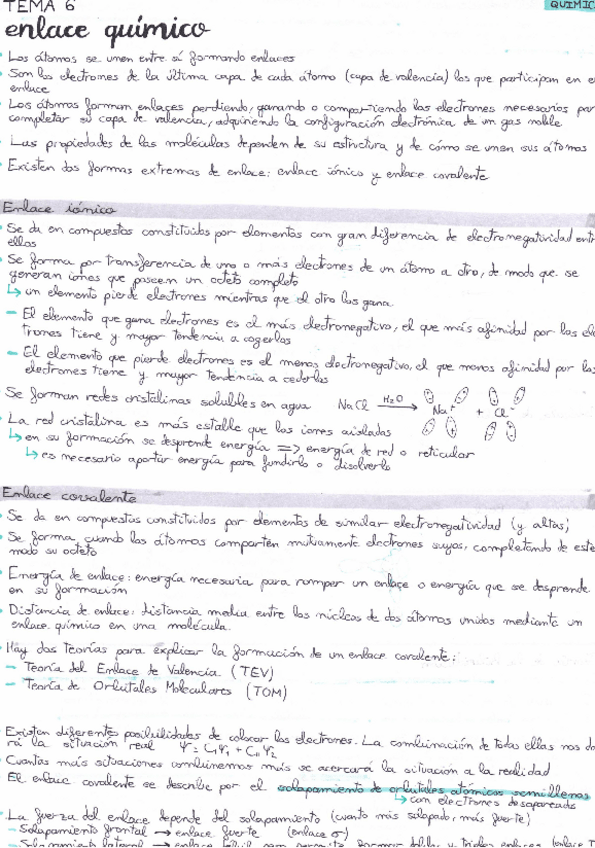 TEMA 6
QUÍMIC
enlace químico
Los átomos se unen entre sí formando enlaces
Son los electrones de la última capa de cada átomo (capa de valencia) los que participan en e
enlace
Los átomos forman enlaces perdiendo, ganando o compartiendo los electrones necesarios par
completar su capa de valencia, adquiriendo la configuración electrónica de un gas noble.
Las propiedades de las moléculas dependen de su estructura y de cómo se unen sus átomos
Existen dos formas extremas de enlace: enlace iónico y enlace covalente
Enlace iónico
Se da en compuestos constituidos por elementos con gran diferencia de electronegatividad entr
ellos
Se forma por transferencia de uno o más electrones de un átomo a otro, de modo que se
generan iones que poseen un octeto completo
↳ un elemento pierde electrones mientras que el otro los gana.
- El elemento que gana electrones es el más electronegativo, el que más afinidad por los ele
trones tiene y mayor tendencia a cogerlos
- El elemento que pierde electrones es el menos electronegativo, el que menos afinidad por los
electrones tiene y mayor tendencia a cederlos
Se forman redes cristalinas solubles en agua NaCl H₂O→ Na⁺ + Cl⁻
La red cristalina es más estable que los iones aislados
↳ en su formación se desprende energía => energía de red o reticular
↳ es necesario aportar energía para fundirlo o disolverlo
Enlace covalente
Se da en compuestos constituidos por elementos de similar electronegatividad (y altas)
Se forma cuando los átomos comparten mutuamente electrones suyos, completando de este
modo su octeto
Energía de enlace: energía necesaria para romper un enlace o energía que se desprende
en su formación
Distancia de enlace: distancia media entre los núcleos de dos átomos unidos mediante un
enlace químico en una molécula.
Hay dos teorías para explicar la formación de un enlace covalente:
- Teoría del Enlace de Valencia (TEV)
- Teoría de Orbitales Moleculares (TOM)
Existen diferentes posibilidades de colocar los electrones. La combinación de todas ellas nos da
rá la situación real
Cuantas más situaciones combinemos más se acercará la situación a la realidad
El enlace covalente se describe por el solapamiento de orbitales atómicos semillenos
↳ con electrones desapareados
La fuerza del enlace depende del solapamiento (cuanto más solapado, más fuerte)
- Solapamiento frontal → enlace fuerte (enlace σ)
- Solapamiento lateral → enlace